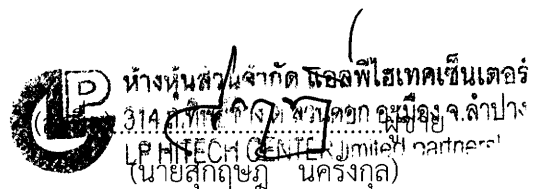 LP ห้างหุ้นส่วนจำกัด แอลพีไฮเทคเซ็นเตอร์
314 สวนดอก อ.เมือง จ.ลำปาง
ผู้ขาย
LP HITECH CENTER limited partners
(นายสุกฤษฎิ์ นครังกุล)